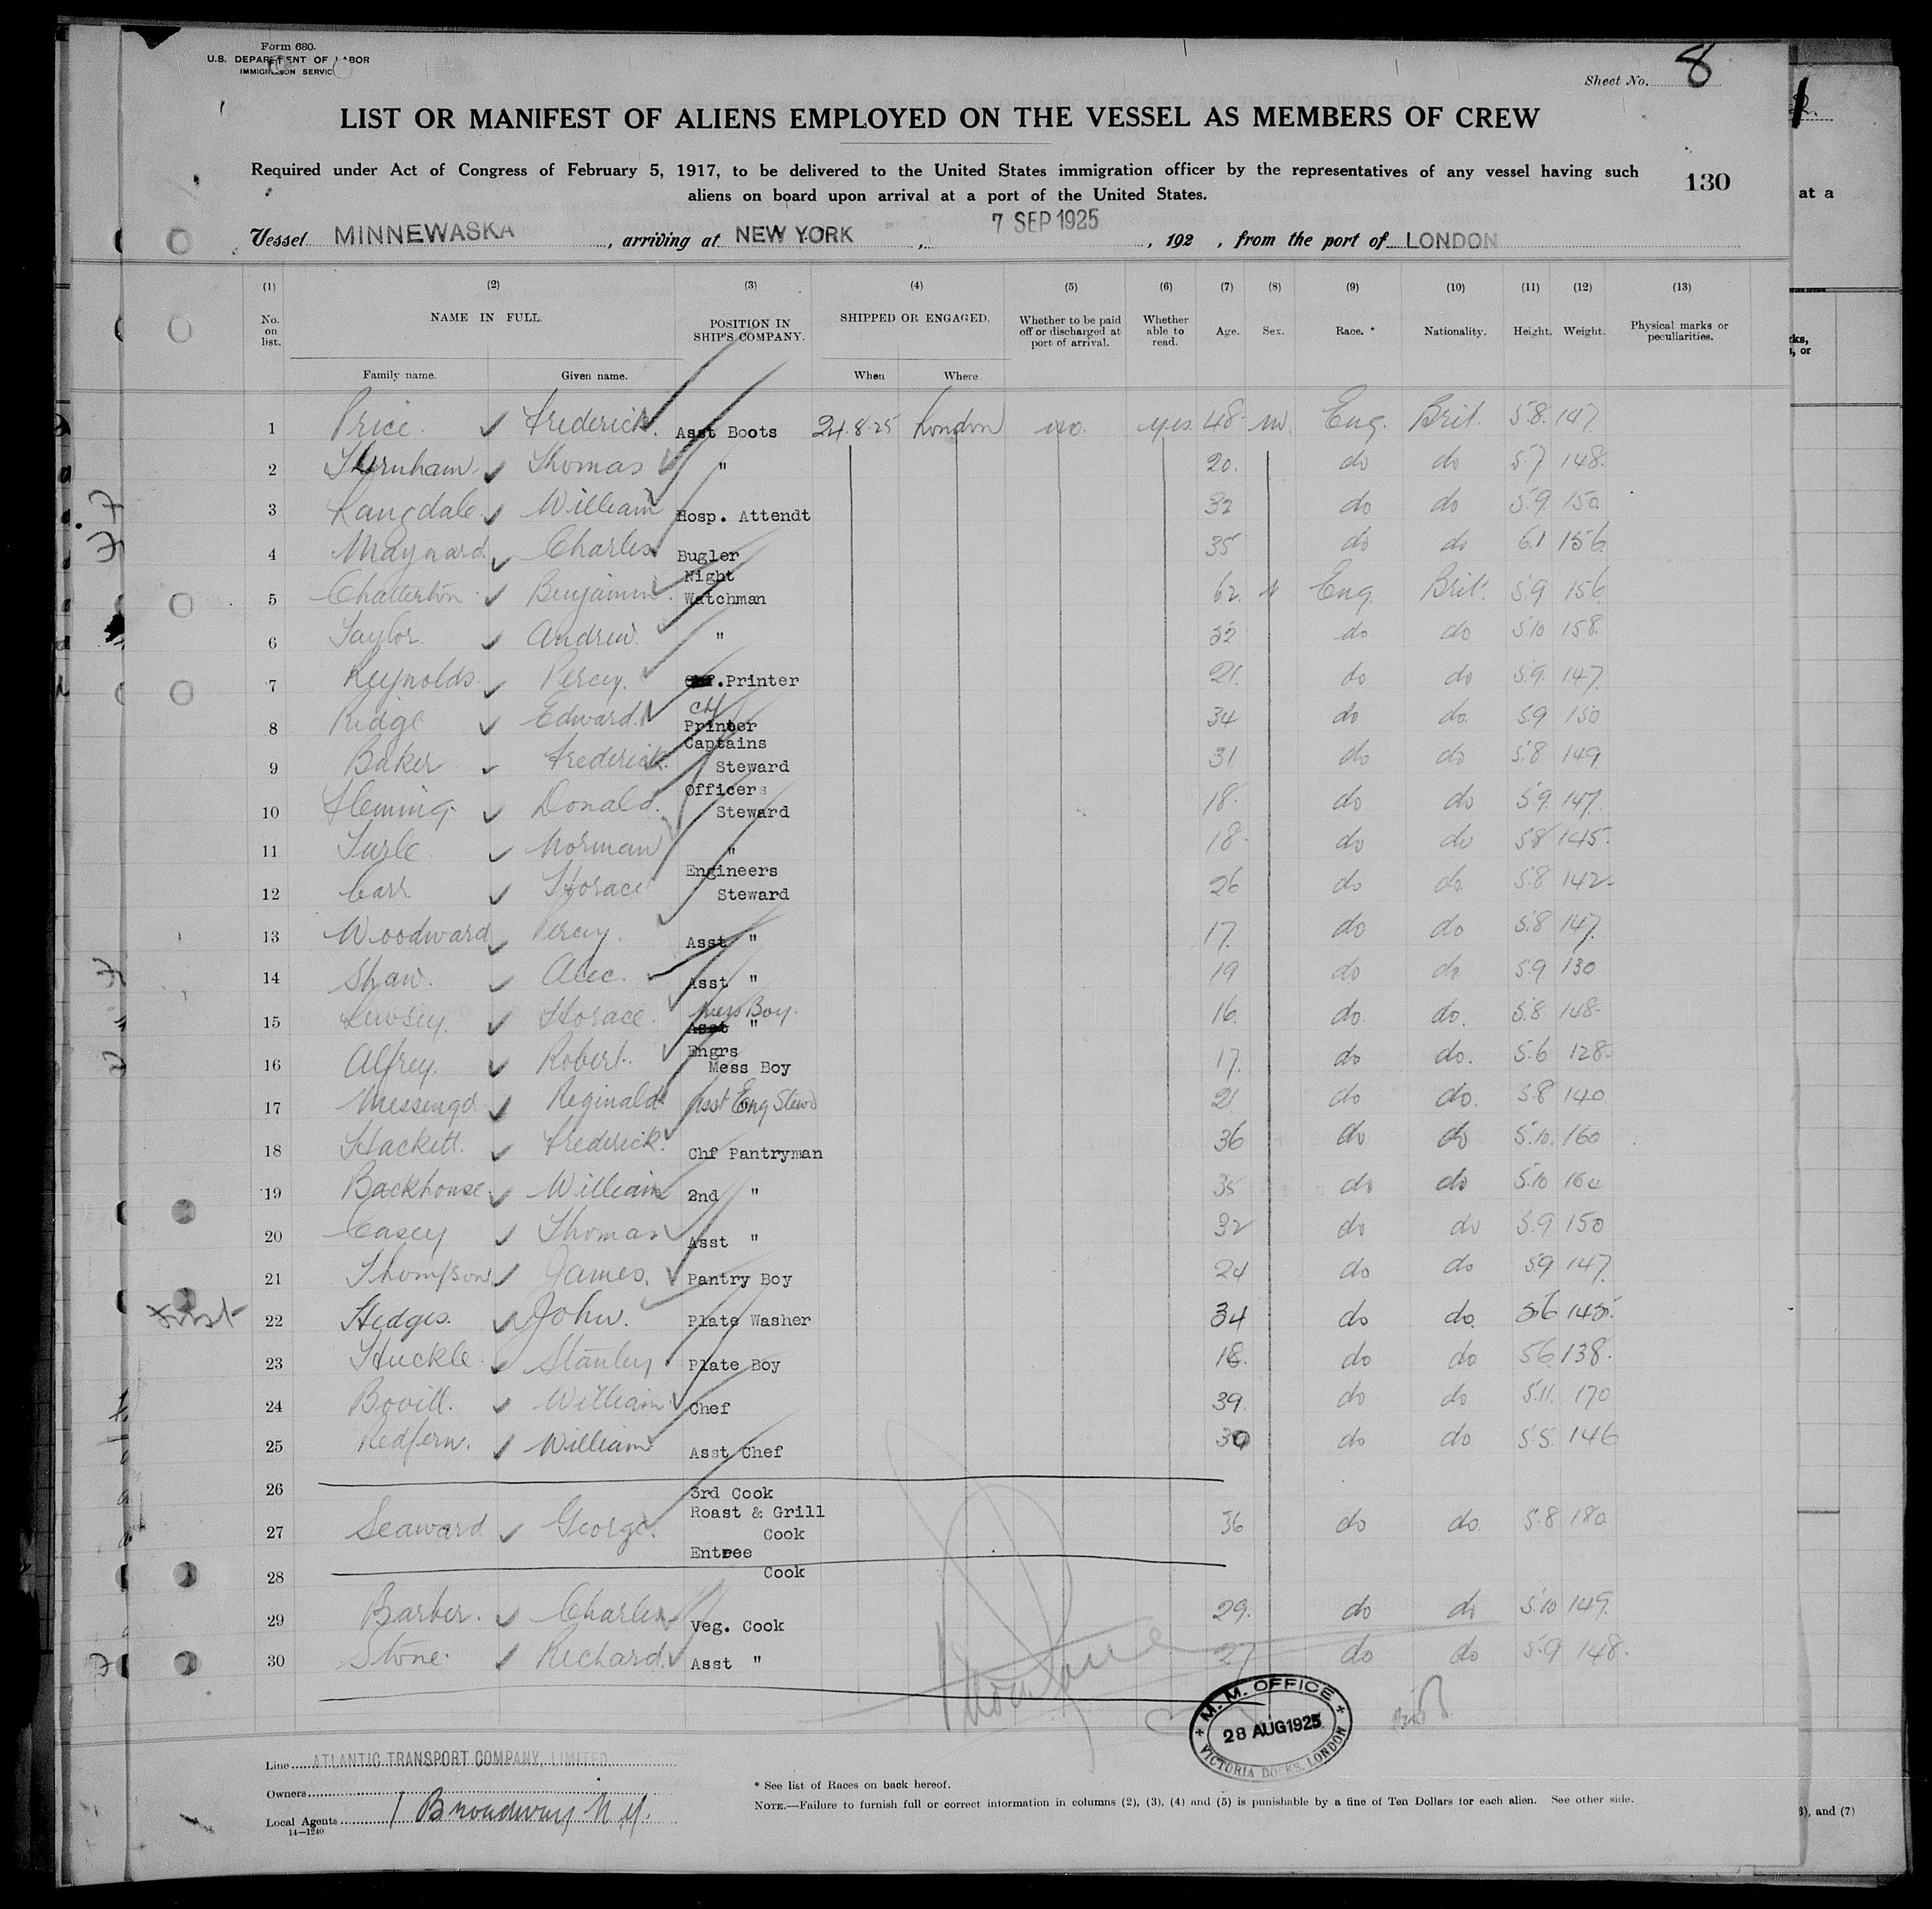 Form 680.
U.S. DEPARTMENT OF LABOR
IMMIGRATION SERVICE
Sheet No. 8
LIST OR MANIFEST OF ALIENS EMPLOYED ON THE VESSEL AS MEMBERS OF CREW
Required under Act of Congress of February 5, 1917, to be delivered to the United States immigration officer by the representatives of any vessel having such
aliens on board upon arrival at a port of the United States.
130
at a
Vessel MINNEWASKA, arriving at NEW YORK, 7 SEP 1925, 192 , from the port of LONDON
(1) (2) (3) (4) (5) (6) (7) (8) (9) (10) (11) (12) (13)
No. on list. NAME IN FULL. POSITION IN SHIP'S COMPANY. SHIPPED OR ENGAGED. Whether to be paid off or discharged at port of arrival. Whether able to read. Age. Sex. Race. * Nationality. Height. Weight. Physical marks or peculiarities.
Family name. Given name. When Where
1 Price. Frederick. Asst Boots 24.8.25 London no. yes. 48 m. Eng. Brit. 5.8. 147
2 Thomas " 20. do do 5.7 148.
3 Langdale William Hosp. Attendt 32 do do 5.9 150
4 Maynard. Charles Bugler 35 do do 6.1 156.
5 Chatterton Benjamin Night Watchman 62. Eng. Brit. 5.9 156
6 Taylor. Andrew. " 32 do do 5.10 158.
7 Reynolds. Percy. Chf.Printer 21. do do 5.9. 147.
8 Ridge Edward. Chf Printer 34 do do. 5.9 150
9 Baker Frederick Captains Steward 31 do do 5.8 149
10 Fleming. Donald. Officers Steward 18. do do 5.9. 147.
11 Norman " 18. do do 5.8 145.
12 Carr Horace Engineers Steward 26 do do. 5.8 142
13 Woodward Percy. Asst " 17. do do 5.8 147.
14 Shaw. Alec. Asst " 19 do do. 5.9 130
15 Horace. Mess Boy. Asst " 16. do. do. 5.8. 148
16 Alfrey. Robert. Engrs Mess Boy 17. do do. 5.6 128
17 Reginald Asst Eng Stewd 21 do do. 5.8 140
18 Hackett. Frederick. Chf Pantryman 36 do do 5.10. 160
19 Backhouse William 2nd " 35 do do 5.10 164
20 Casey Thomas Asst " 32 do do 5.9 150
21 Thompson James. Pantry Boy 24 do do 5.9 147.
22 Hedges. John. Plate Washer 34 do do. 5.6 145.
23 Huckle Stanley Plate Boy 18. do do 5.6. 138.
24 Bovill. William Chef 39. do do 5.11. 170
25 Redfern. William Asst Chef 30 do do 5.5. 146
26 3rd Cook
27 Seaward George. Roast & Grill Cook 36 do do. 5.8 180
28 Entree Cook
29 Barber. Charles Veg. Cook 29. do do 5.10 149.
30 Stone. Richard. Asst " 27 do do 5.9 148.
M. M. OFFICE
28 AUG 1925
VICTORIA DOCKS, LONDON
Line ATLANTIC TRANSPORT COMPANY, LIMITED.
Owners
Local Agents 1 Broadway N.Y.
14—1240
* See list of Races on back hereof.
NOTE.—Failure to furnish full or correct information in columns (2), (3), (4) and (5) is punishable by a fine of Ten Dollars for each alien. See other side.
, and (7)